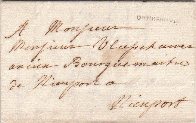 A Monsieur
Monsieur
ancien Bourguemaitre
de Nieuport a
Nieuport